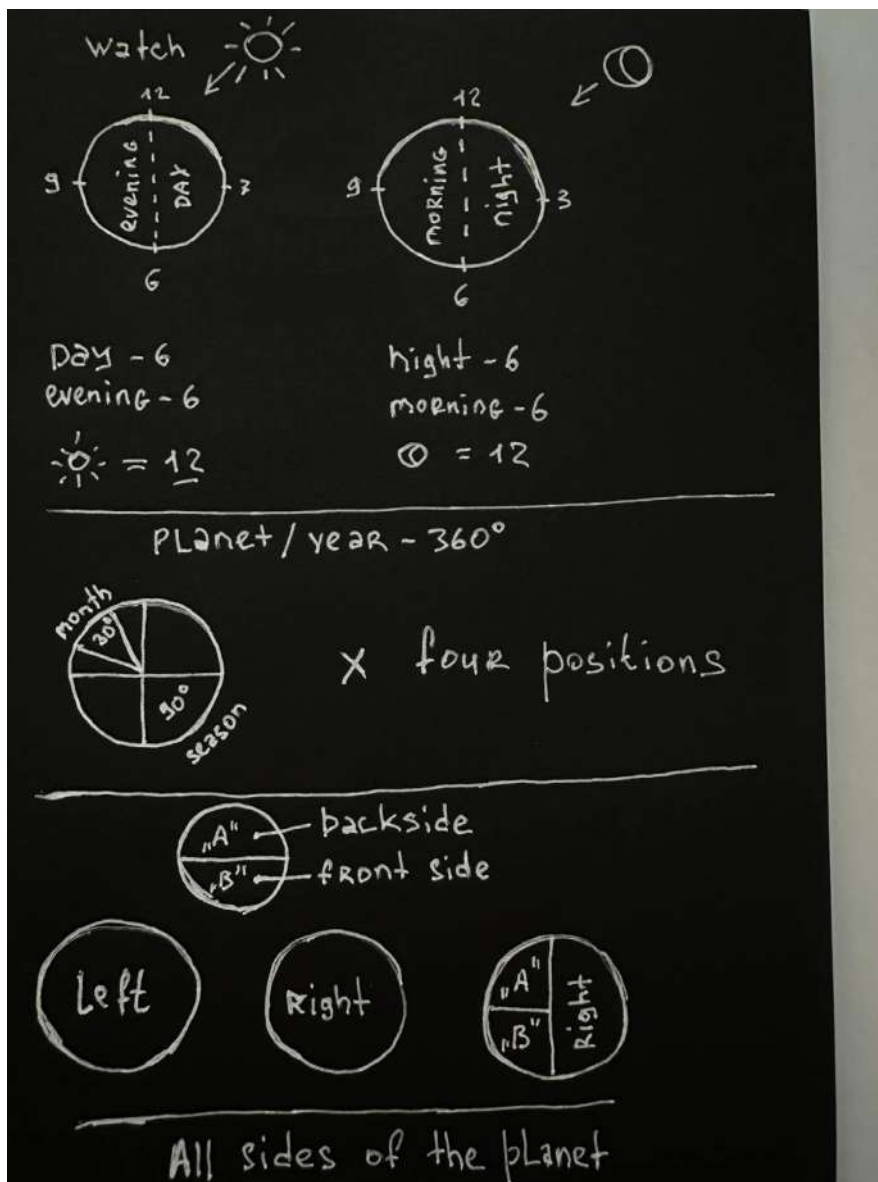 watch
12
12
9
evening
DAY
3
9
morning
night
3
6
6
Day - 6
night - 6
evening - 6
morning - 6
= 12
= 12
Planet / year - 360°
month
30°
90°
season
x four positions
„A" backside
„B" front side
Left
Right
„A"
„B"
Right
All sides of the planet